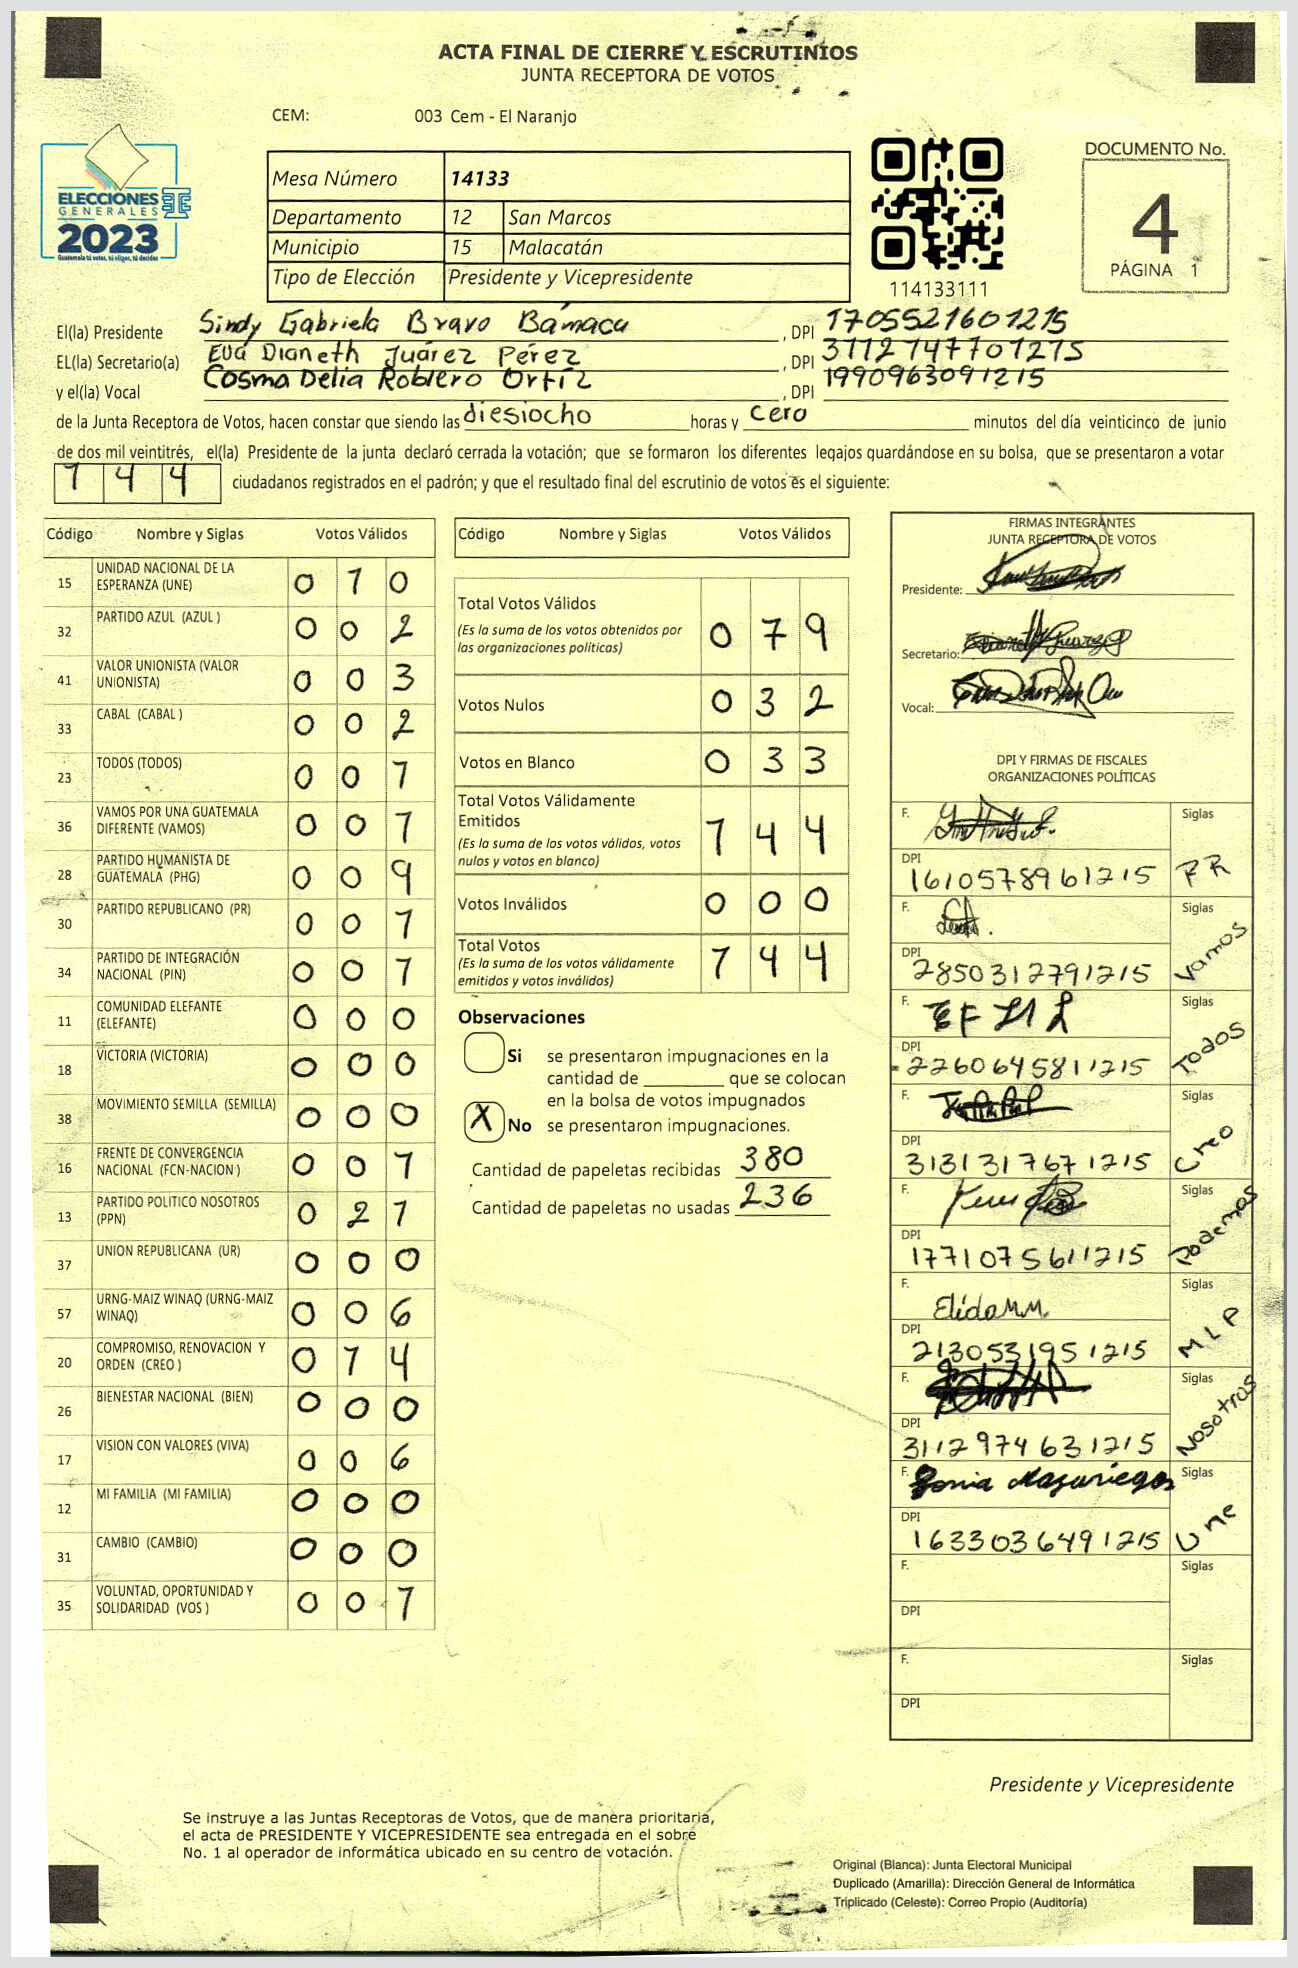 ACTA FINAL DE CIERRE Y ESCRUTINIOS
JUNTA RECEPTORA DE VOTOS
CEM: 003 Cem - El Naranjo
ELECCIONES
GENERALES
2023
Guatemala tú votas, tú eliges, tú decides
Mesa Número 14133
Departamento 12 San Marcos
Municipio 15 Malacatán
Tipo de Elección Presidente y Vicepresidente
114133111
DOCUMENTO No.
4
PÁGINA 1
El(la) Presidente Sindy Gabriela Bravo Bámaca , DPI 1705521601215
EL(la) Secretario(a) Eva Dianeth Juárez Pérez , DPI 3112147701215
y el(la) Vocal Cosma Delia Roblero Ortíz , DPI 1990963091215
de la Junta Receptora de Votos, hacen constar que siendo las diesiocho horas y cero minutos del día veinticinco de junio
de dos mil veintitrés, el(la) Presidente de la junta declaró cerrada la votación; que se formaron los diferentes legajos guardándose en su bolsa, que se presentaron a votar
144 ciudadanos registrados en el padrón; y que el resultado final del escrutinio de votos es el siguiente:
Código Nombre y Siglas Votos Válidos
15 UNIDAD NACIONAL DE LA ESPERANZA (UNE) 0 1 0
32 PARTIDO AZUL (AZUL ) 0 0 2
41 VALOR UNIONISTA (VALOR UNIONISTA) 0 0 3
33 CABAL (CABAL ) 0 0 2
23 TODOS (TODOS) 0 0 1
36 VAMOS POR UNA GUATEMALA DIFERENTE (VAMOS) 0 0 1
28 PARTIDO HUMANISTA DE GUATEMALA (PHG) 0 0 9
30 PARTIDO REPUBLICANO (PR) 0 0 1
34 PARTIDO DE INTEGRACIÓN NACIONAL (PIN) 0 0 1
11 COMUNIDAD ELEFANTE (ELEFANTE) 0 0 0
18 VICTORIA (VICTORIA) 0 0 0
38 MOVIMIENTO SEMILLA (SEMILLA) 0 0 0
16 FRENTE DE CONVERGENCIA NACIONAL (FCN-NACION ) 0 0 1
13 PARTIDO POLITICO NOSOTROS (PPN) 0 2 1
37 UNION REPUBLICANA (UR) 0 0 0
57 URNG-MAIZ WINAQ (URNG-MAIZ WINAQ) 0 0 6
20 COMPROMISO, RENOVACION Y ORDEN (CREO ) 0 1 4
26 BIENESTAR NACIONAL (BIEN) 0 0 0
17 VISION CON VALORES (VIVA) 0 0 6
12 MI FAMILIA (MI FAMILIA) 0 0 0
31 CAMBIO (CAMBIO) 0 0 0
35 VOLUNTAD, OPORTUNIDAD Y SOLIDARIDAD (VOS ) 0 0 1
Código Nombre y Siglas Votos Válidos
Total Votos Válidos 0 7 9
(Es la suma de los votos obtenidos por
las organizaciones politicas)
Votos Nulos 0 3 2
Votos en Blanco 0 3 3
Total Votos Válidamente
Emitidos 1 4 4
(Es la suma de los votos válidos, votos
nulos y votos en blanco)
Votos Inválidos 0 0 0
Total Votos 1 4 4
(Es la suma de los votos válidamente
emitidos y votos inválidos)
Observaciones
Si se presentaron impugnaciones en la
cantidad de ________ que se colocan
en la bolsa de votos impugnados
X No se presentaron impugnaciones.
Cantidad de papeletas recibidas 380
Cantidad de papeletas no usadas 236
FIRMAS INTEGRANTES
JUNTA RECEPTORA DE VOTOS
Presidente:
Secretario:
Vocal:
DPI Y FIRMAS DE FISCALES
ORGANIZACIONES POLÍTICAS
F. Siglas
DPI 1610578961215 PR
F. Siglas
DPI 2850312791215 Vamos
F. Siglas
DPI 2260645811215 Todos
F. Siglas
DPI 3131317671215 Creo
F. Siglas
DPI 1771075611215 Podemos
F. Elida M.M. Siglas
DPI 2130531951215 MLP
F. Siglas
DPI 3112974631215 Nosotros
F. Sonia Mazariegos Siglas
DPI 1633036491215 Une
F. Siglas
DPI
F. Siglas
DPI
Presidente y Vicepresidente
Se instruye a las Juntas Receptoras de Votos, que de manera prioritaria,
el acta de PRESIDENTE Y VICEPRESIDENTE sea entregada en el sobre
No. 1 al operador de informática ubicado en su centro de votación.
Original (Blanca): Junta Electoral Municipal
Duplicado (Amarilla): Dirección General de Informática
Triplicado (Celeste): Correo Propio (Auditoría)